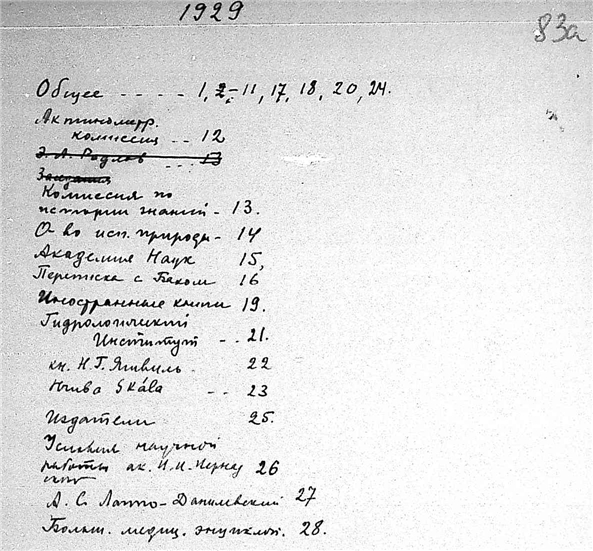 1929
83а
Общее - - - - 1, 2-11, 17, 18, 20, 24.
Актинометр.
комиссия - - 12
Э. Л. Радлов - - - 13
Заседания
Комиссия по
истории знаний - 13.
О-во исп. природы - 14
Академия Наук 15,
Переписка с Баком 16
Иностранные книги 19.
Гидрологический
Институт - - 21.
кн. Н. Г. Яшвиль - 22
Skála - - 23
Издатели 25.
Условия научной
работы ак. 26
А. С. Лаппо-Данилевский 27
Больш. медиц. энциклоп. 28.